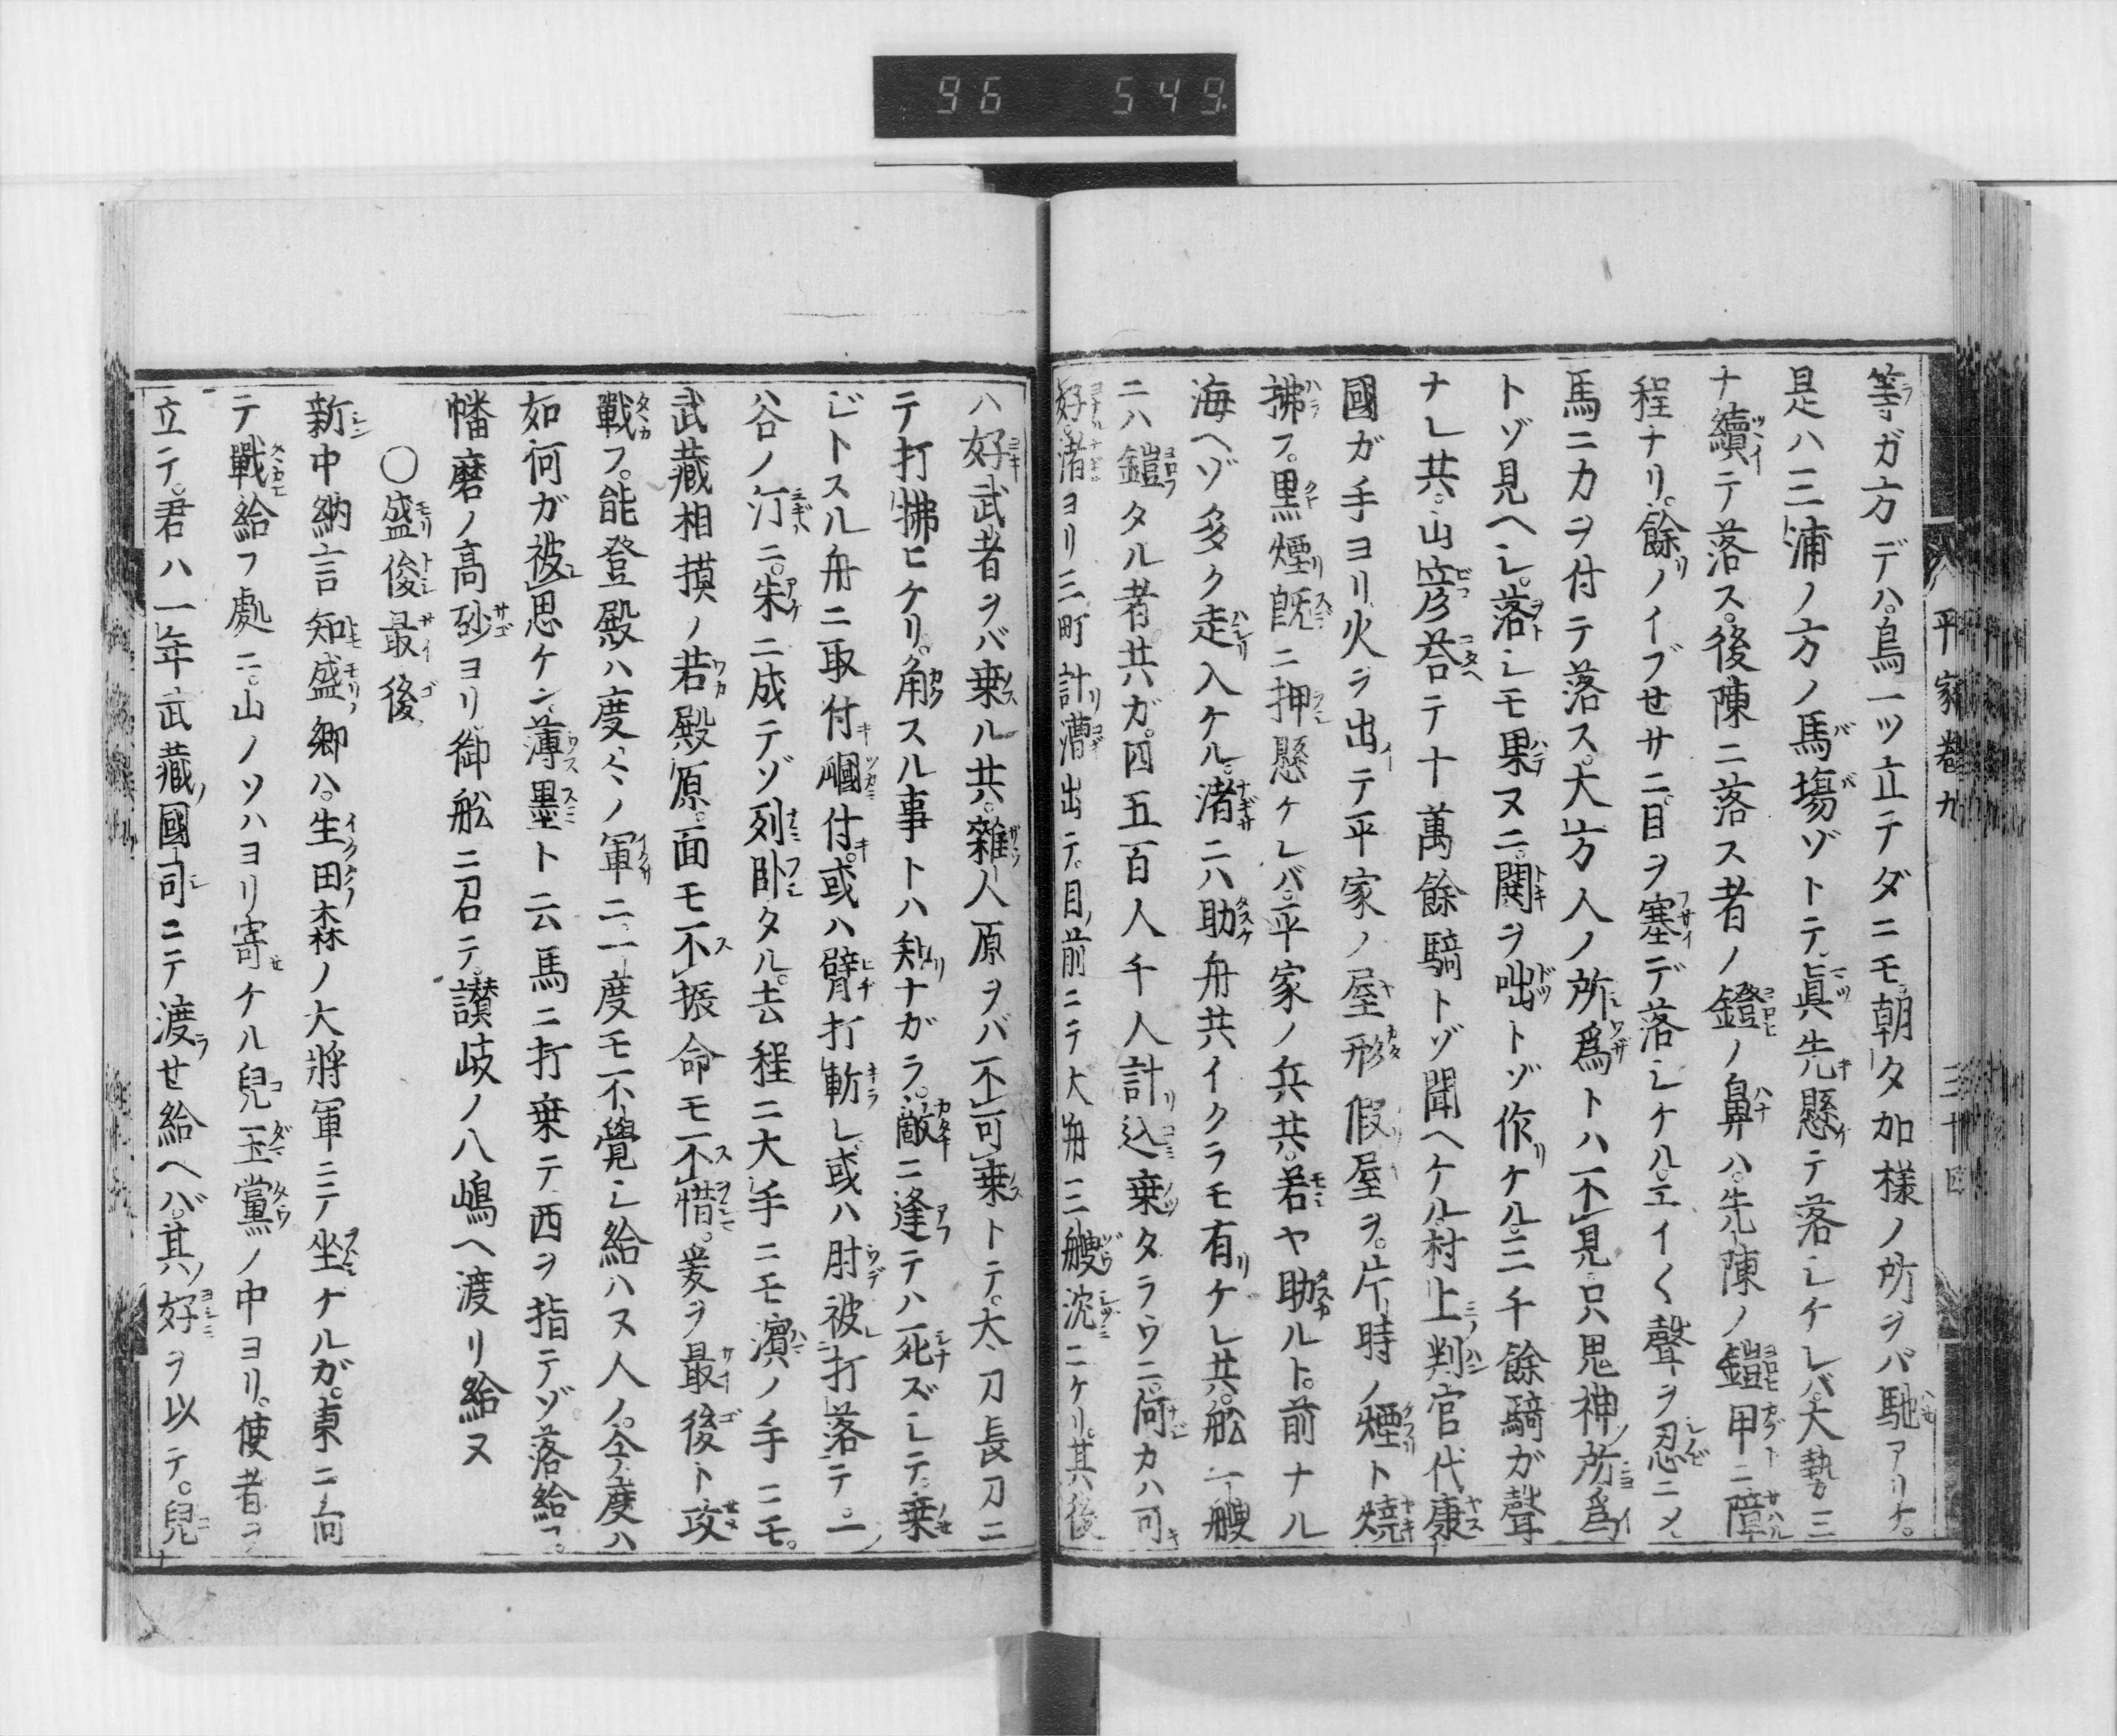 96 549
平家巻九 三十四
等ガ方デハ。鳥一ツ立テダニモ朝夕加様ノ所ヲバ馳アリケ。
是ハ三浦ノ方ノ馬場ゾトテ。眞先懸テ落シケレバ。大勢三
ナ續テ落ス。後陳ニ落ス者ノ鐙ノ鼻ハ。先陳ノ鎧甲ニ障
程ナリ。餘ノイブセサニ。目ヲ塞デ落シケル。エイ〱聲ヲ忍ニメ
馬ニカヲ付テ落ス。大方人ノ所爲トハ不見只鬼神所爲
トゾ見ヘシ。落シモ果ヌニ。閧ヲ咄トゾ作ケル。三千餘騎ガ聲
ナレ共。山彦荅テ十萬餘騎トゾ聞ヘケル。村上判官代康
國ガ手ヨリ火ヲ出テ平家ノ屋形假屋ヲ。片時ノ煙ト燒
拂フ。黒煙既ニ押懸ケレバ。平家ノ兵共。若ヤ助ルト。前ナル
海ヘゾ多ク走入ケル。渚ニハ助舟共イクラモ有ケレ共。舩一艘
ニハ鎧タル者共ガ。四五百人千人計込乗タラウニ。何カハ可
好。渚ヨリ三町計漕出テ。目前ニテ大舟三艘沈ニケリ。其後
ハ好武者ヲバ乗ル共。雜人原ヲバ不可乗トテ。太刀長刀ニ
テ打拂ヒケリ。角スル事トハ知ナガラ。敵ニ逢テハ死ズシテ。乗
ジトスル舟ニ取付㧽付。或ハ臂打斬レ或ハ肘被打落テ。一
ハ谷ノ汀ニ。朱ニ成テゾ列臥タル。去程ニ大手ニモ濱ノ手ニモ。
武藏相摸ノ若殿原。面モ不振命モ不惜。爰ヲ最後ト攻
戰フ。能登殿ハ度々ノ軍ニ。一度モ不覺シ給ハヌ人ノ。今度ハ
如何ガ被思ケン。薄墨ト云馬ニ打乗テ西ヲ指テゾ落給フ。
幡磨ノ高砂ヨリ御舩ニ召テ。讃岐ノ八嶋ヘ渡リ給ヌ
○盛俊最後
新中納言知盛卿ハ。生田森ノ大將軍ニテ坐ケルガ。東ニ向
テ戰給フ處ニ。山ノソハヨリ寄ケル兒玉黨ノ中ヨリ。使者ヲ
立テ。君ハ一年武藏國司ニテ渡セ給ヘバ。其好ヲ以テ。兒